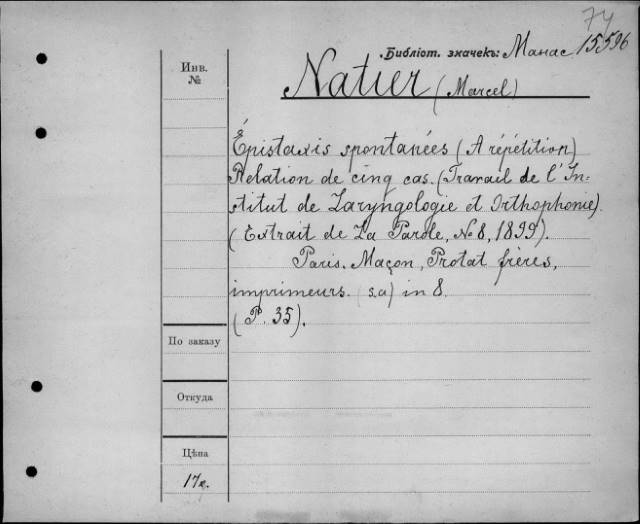 74
Библіот. значекъ: Манас 15596
Инв.
№
Natier (Marcel)
Épistaxis spontanées (A répétition)
Relation de cinq cas. (Travail de l'In=
stitut de Laryngologie et Orthophonie).
(Extrait de La Parole, № 8, 1899).
Paris. Maçon, Protat frères,
imprimeurs. (s.a) in 8.
(P. 35).
По заказу
Откуда
Цѣна
17к.